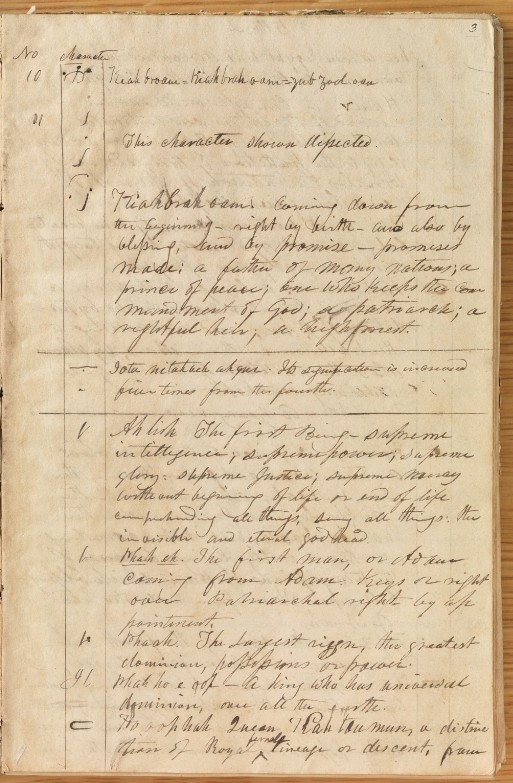 3
No Character
10 Kiah broam = Kiah brah oam = zub zool oan
11
This character shown disected.
Kiah brah oam: coming down from
the beginning - right by birth - and also by
blessing, and by promise - promises
made; a father of many nations; a
prince of peace; one who keeps the com
mandment of God; a patriarch; a
rightful heir; a highpriest.
Iota nitahach ah que: Its signification is increased
five times from the fourth.
Ah lish The first Being - supreme
intelligence; supreme power; supreme
glory - supreme Justice; supreme mercy
without begining of life or end of life
comprehending all things, seeing all things: the
invisible and eternal godhead.
Phah eh. The first man, or Adam
coming from Adam. Keys or right
over Patriarchal right by ap
pointment.
Phaah. The Largest reign, the greatest
dominion, possessions or power.
Phah ho e oop - A king who has universal
dominion, over all the earth.
Ho oop hah Queen, a distinc
tion of Royal female lineage or descent, from